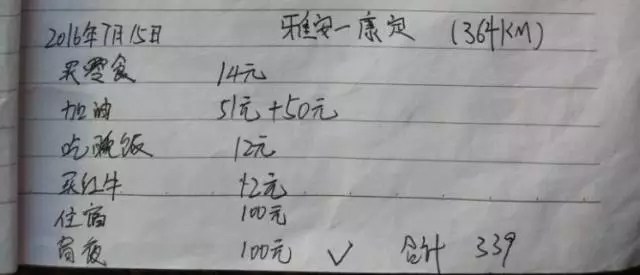 2016年7月15日 雅安一康定 (364KM)
买零食 14元
加油 51元+50元
吃晚饭 12元
买红牛 12元
住宿 100元
宵夜 100元 ✓ 合计 339